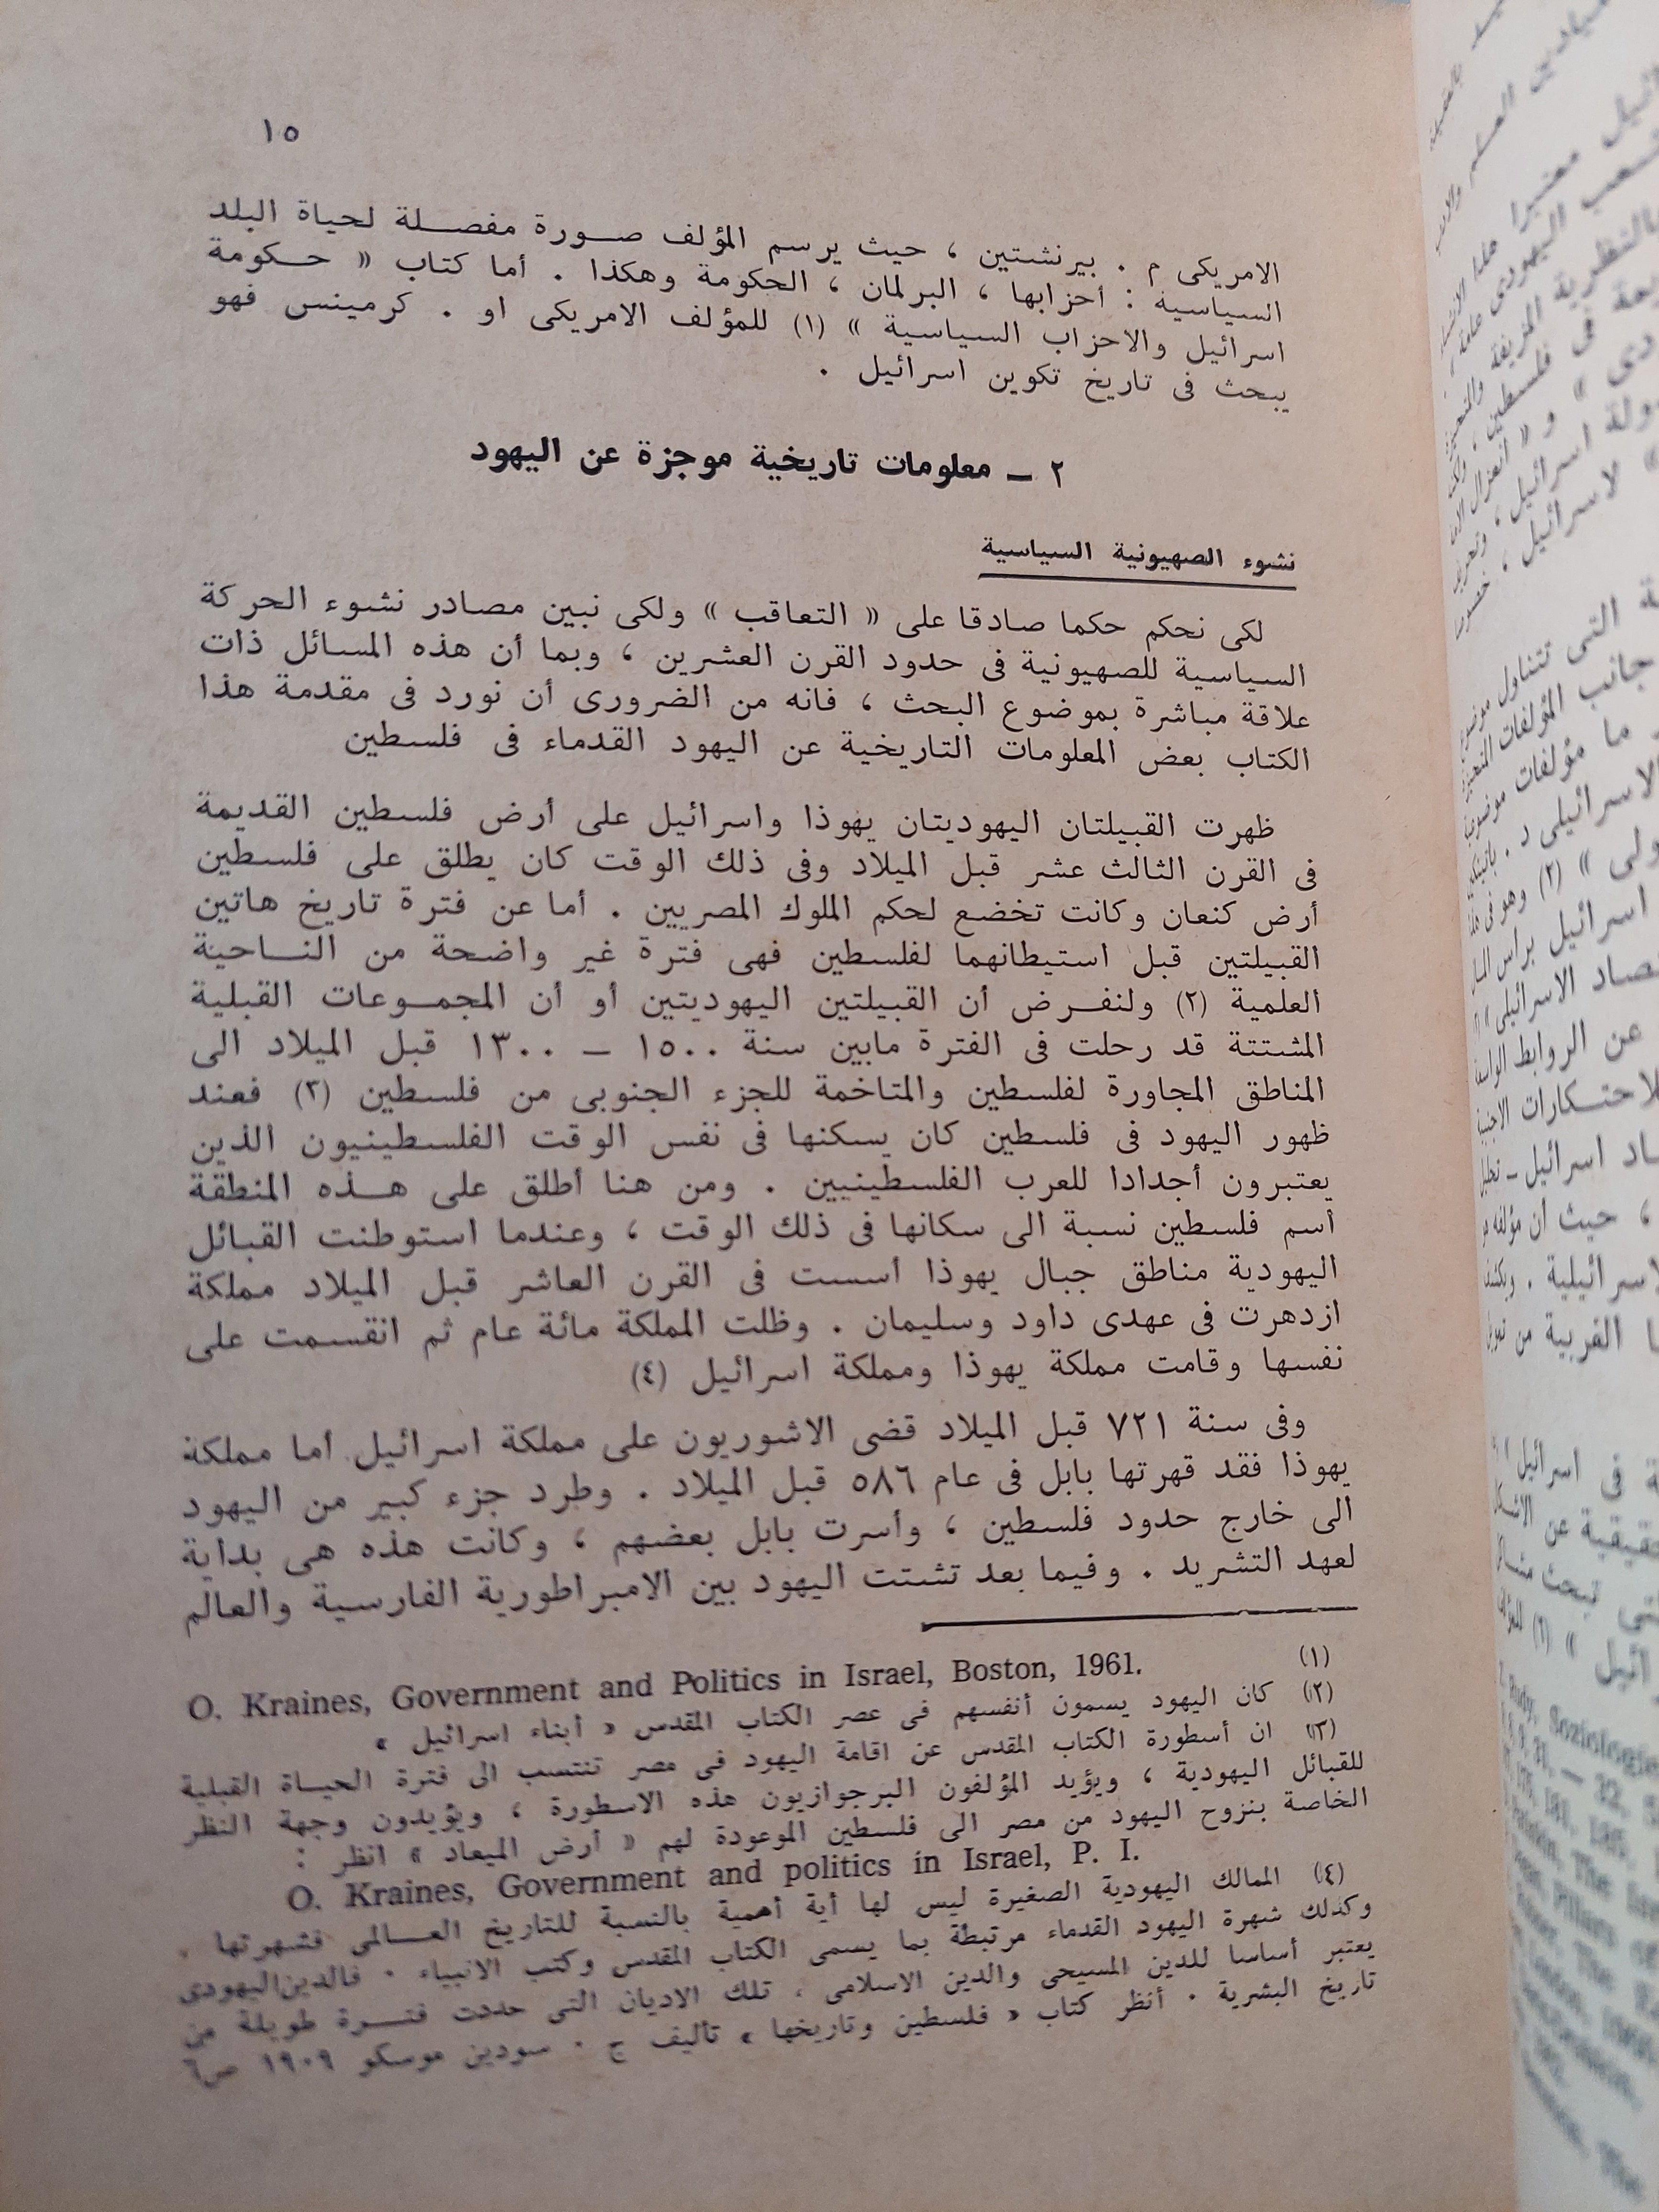 ١٥
الامريكى م . بيرنشتين ، حيث يرسم المؤلف صورة مفصلة لحياة البلد
السياسية : أحزابها ، البرلمان ، الحكومة وهكذا . أما كتاب « حكومة
اسرائيل والاحزاب السياسية » (١) للمؤلف الامريكى او . كرمينس فهو
يبحث فى تاريخ تكوين اسرائيل .
٢ — معلومات تاريخية موجزة عن اليهود
نشوء الصهيونية السياسية
لكى نحكم حكما صادقا على « التعاقب » ولكى نبين مصادر نشوء الحركة
السياسية للصهيونية فى حدود القرن العشرين ، وبما أن هذه المسائل ذات
علاقة مباشرة بموضوع البحث ، فانه من الضرورى أن نورد فى مقدمة هذا
الكتاب بعض المعلومات التاريخية عن اليهود القدماء فى فلسطين
ظهرت القبيلتان اليهوديتان يهوذا واسرائيل على أرض فلسطين القديمة
فى القرن الثالث عشر قبل الميلاد وفى ذلك الوقت كان يطلق على فلسطين
أرض كنعان وكانت تخضع لحكم الملوك المصريين . أما عن فترة تاريخ هاتين
القبيلتين قبل استيطانهما لفلسطين فهى فترة غير واضحة من الناحية
العلمية (٢) ولنفرض أن القبيلتين اليهوديتين أو أن المجموعات القبلية
المشتتة قد رحلت فى الفترة مابين سنة ١٥٠٠ — ١٣٠٠ قبل الميلاد الى
المناطق المجاورة لفلسطين والمتاخمة للجزء الجنوبى من فلسطين (٣) فعند
ظهور اليهود فى فلسطين كان يسكنها فى نفس الوقت الفلسطينيون الذين
يعتبرون أجدادا للعرب الفلسطينيين . ومن هنا أطلق على هذه المنطقة
أسم فلسطين نسبة الى سكانها فى ذلك الوقت ، وعندما استوطنت القبائل
اليهودية مناطق جبال يهوذا أسست فى القرن العاشر قبل الميلاد مملكة
ازدهرت فى عهدى داود وسليمان . وظلت المملكة مائة عام ثم انقسمت على
نفسها وقامت مملكة يهوذا ومملكة اسرائيل (٤)
وفى سنة ٧٢١ قبل الميلاد قضى الاشوريون على مملكة اسرائيل أما مملكة
يهوذا فقد قهرتها بابل فى عام ٥٨٦ قبل الميلاد . وطرد جزء كبير من اليهود
الى خارج حدود فلسطين ، وأسرت بابل بعضهم ، وكانت هذه هى بداية
لعهد التشريد . وفيما بعد تشتت اليهود بين الامبراطورية الفارسية والعالم
(١) O. Kraines, Government and Politics in Israel, Boston, 1961.
(٢) كان اليهود يسمون أنفسهم فى عصر الكتاب المقدس « أبناء اسرائيل »
(٣) ان أسطورة الكتاب المقدس عن اقامة اليهود فى مصر تنتسب الى فترة الحياة القبلية
للقبائل اليهودية ، ويؤيد المؤلفون البرجوازيون هذه الاسطورة ، ويؤيدون وجهة النظر
الخاصة بنزوح اليهود من مصر الى فلسطين الموعودة لهم « أرض الميعاد » انظر :
O. Kraines, Government and politics in Israel, P. I.
(٤) الممالك اليهودية الصغيرة ليس لها أية أهمية بالنسبة للتاريخ العالمى فشهرتها
وكذلك شهرة اليهود القدماء مرتبطة بما يسمى الكتاب المقدس وكتب الانبياء . فالدين اليهودى
يعتبر أساسا للدين المسيحى والدين الاسلامى ، تلك الاديان التى حددت فترة طويلة من
تاريخ البشرية . أنظر كتاب « فلسطين وتاريخها » تأليف ج . سودين موسكو ١٩٠٩ ص٦